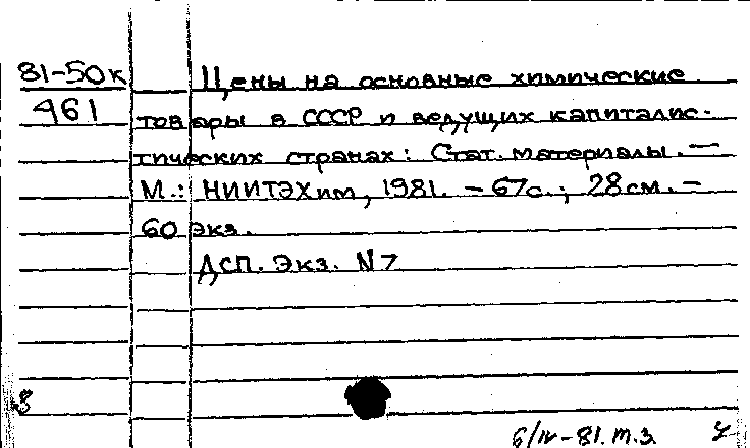 81-50к Цены на основные химические
461 товары в СССР и ведущих капиталис-
тических странах: Стат. материалы. —
М.: НИИТЭХим, 1981. – 67с.; 28см. –
60 экз.
ДСП. Экз. N7
6/IV-81. т.з.